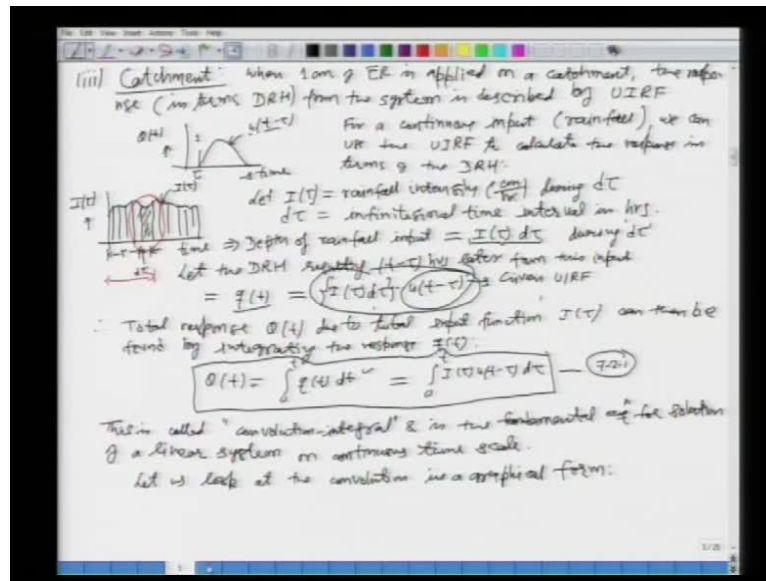 File Edit View Insert Actions Tools Help
(iii) Catchment: when 1 cm of ER is applied on a catchment, the respo-
nse (in terms DRH) from the system is described by UIRF
Q(t) 1 u(t-τ) τ → time
For a continuous input (rainfall), we can
use the UIRF to calculate the response in
terms of the DRH.
I(τ) I(τ)
Let I(τ) = rainfall intensity (cm/hr) during dτ
dτ = infinitesimal time interval in hrs.
time ⇒ Depth of rainfall input = I(τ) dτ during dτ
dτ
Let the DRH resulting (t-τ) hrs later from this input
= q(t) = {I(τ)dτ} · u(t-τ) → Given UIRF
∴ Total response Q(t) due to total input function I(τ) can then be
found by integrating the response q(t).
Q(t) = ∫ q(t) dt = ∫ I(τ) u(t-τ) dτ — 7.2.1
This is called "convolution-integral" & is the fundamental eqn for solution
of a linear system on continuous time scale.
Let us look at the convolution in a graphical form:
5/25